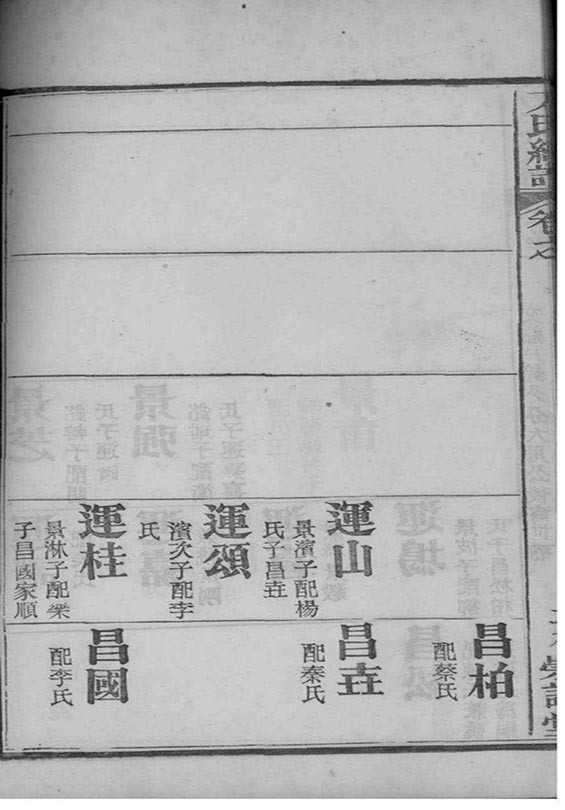 卷之
運山
景濱子配楊
氏子昌垚
運頌
濱次子配李
氏
運桂
景淋子配樂
子昌國家順
昌柏
配蔡氏
昌垚
配秦氏
昌國
配李氏